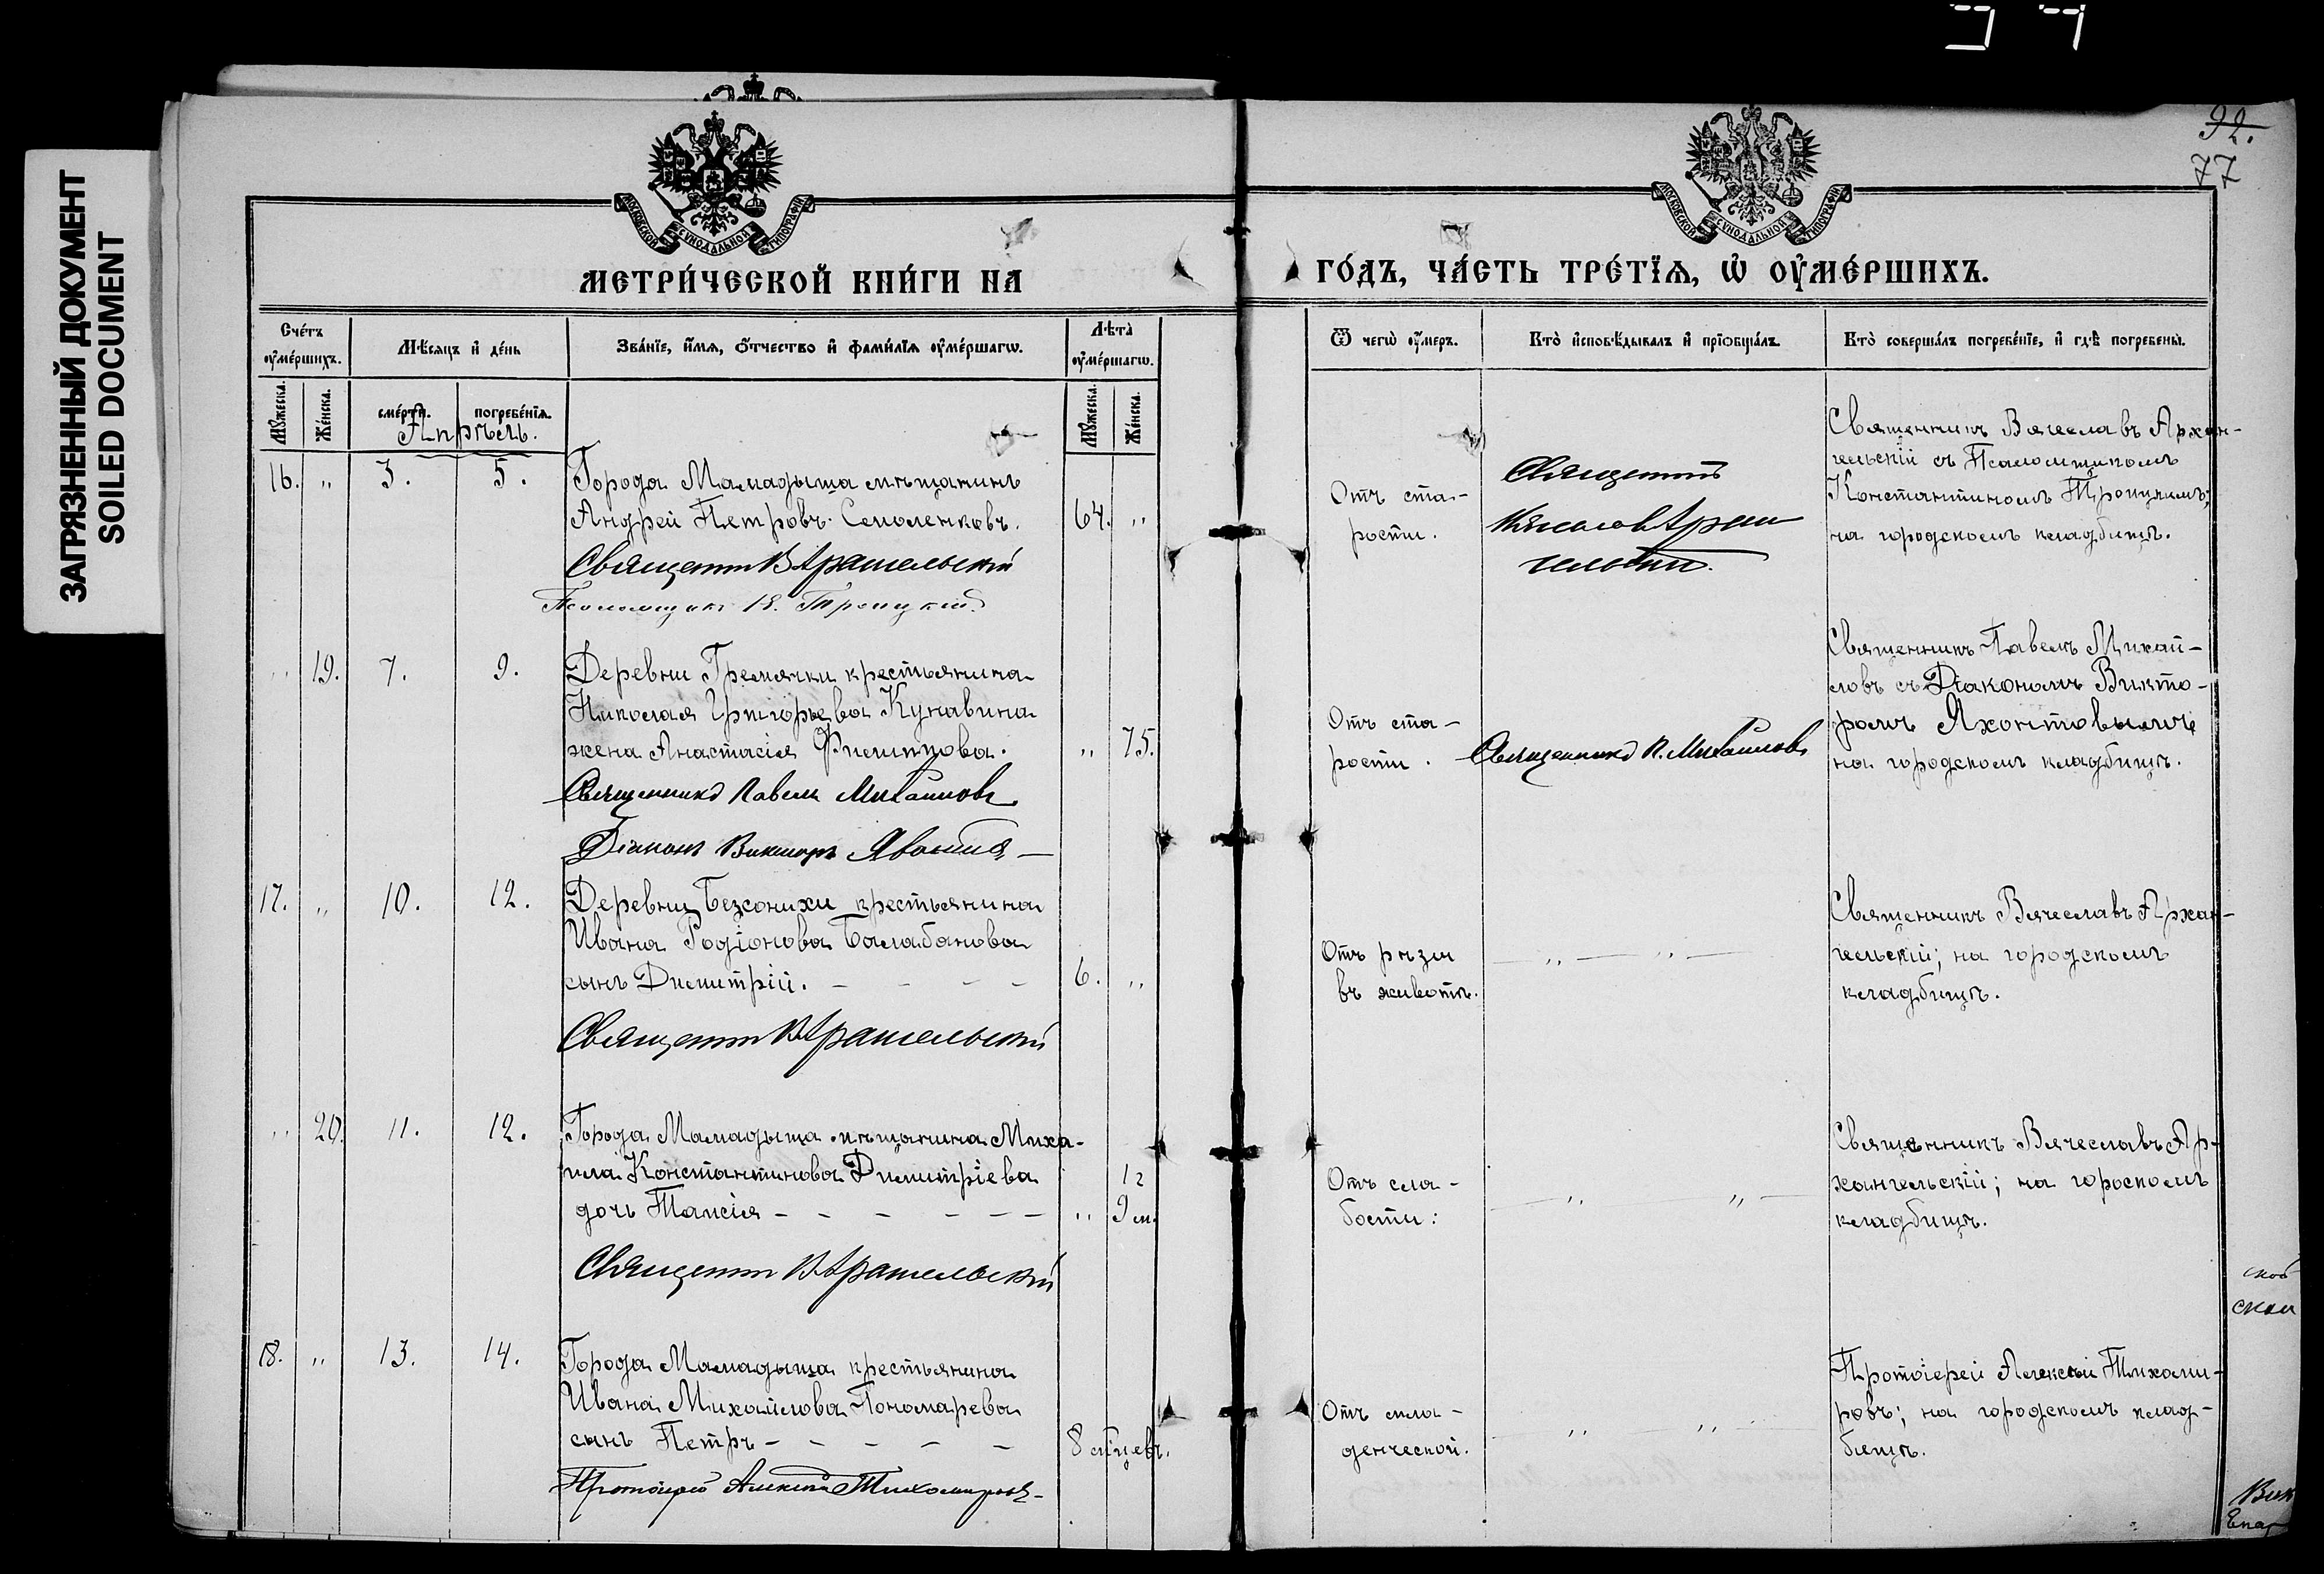 ЗАГРЯЗНЕННЫЙ ДОКУМЕНТ
SOILED DOCUMENT
92.
77
МОСКОВСКОЙ СУНОДАЛЬНОЙ ТИПОГРАФІИ
МОСКОВСКОЙ СУНОДАЛЬНОЙ ТИПОГРАФІИ
МЕТРИ́ЧЕСКОЙ КНИ́ГИ НА
ГО́ДЪ, ЧА́СТЬ ТРЕ́ТЇѦ, Ѡ҆ ОУ҆МЕ́РШИХЪ.
Сче́тъ
оу҆ме́ршихъ.
Мѣ́сяцъ и҆ де́нь
Зва́нїе, и҆́мя, ѻ҆́тчество и҆ фами́лїя оу҆ме́ршагѡ.
Лѣ́та
оу҆ме́ршагѡ.
Мꙋ́жеска.
Же́нска.
сме́рти.
погребе́нїя.
Мꙋ́жеска.
Же́нска.
Ѿ чегѡ̀ оу҆́меръ.
Кто̀ и҆сповѣ́дывалъ и҆ прїѻбща́лъ.
Кто̀ соверша́лъ погребе́нїе, и҆ гдѣ̀ погребены̀.
Апрѣль.
16. „ 3. 5.
Города Мамадыша мѣщанинъ
Андрей Петровъ Смоленковъ.
64. „
Священник В Архангельский
Псаломщик К. Троицкий
Отъ ста-
рости.
Священник
Вячеслав Архан
гельский.
Священникъ Вячеславъ Архан-
гельскій съ Псаломщикомъ
Константиномъ Троицкимъ;
на городскомъ кладбищѣ.
„ 19. 7. 9.
Деревни Гремячки крестьянина
Николая Григорьева Кунавина
жена Анастасія Филиппова.
„ 75.
Священникъ Павелъ Михайловъ
Діаконъ Викторъ Яхонтов
Отъ ста-
рости.
Священникъ П. Михайловъ
Священникъ Павелъ Михай-
ловъ съ Діакономъ Викто-
ромъ Яхонтовымъ
на городскомъ кладбищѣ.
17. „ 10. 12.
Деревни Безсонихи крестьянина
Ивана Родіонова Балабанова
сынъ Димитрій.
6. „
Священник В Архангельский
Отъ рѣзи
въ животѣ.
„ „
Священникъ Вячеславъ Архан-
гельскій; на городскомъ
кладбищѣ.
„ 20. 11. 12.
Города Мамадыша мѣщанина Миха-
ила Константинова Димитріева
дочь Таисія
„ 1 г
9 м.
Священник В Архангельский
Отъ сла-
бости:
„ „
Священникъ Вячеславъ Ар-
хангельскій; на гороскомъ
кладбищѣ.
18. „ 13. 14.
Города Мамадыша крестьянина
Ивана Михайлова Пономарева
сынъ Петръ
8 мѣцевъ.
Протоіерей Алексій Тихомировъ
Отъ мла-
денческой.
„ „
Протоіерей Алексій Тихоми-
ровъ; на городскомъ клад-
бищѣ.